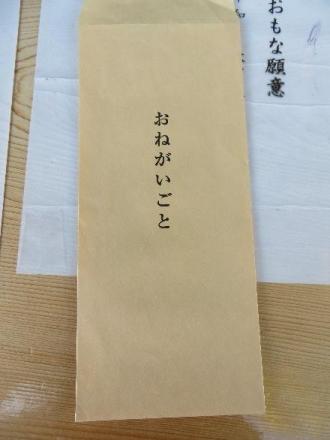 おもな願意
おねがいごと